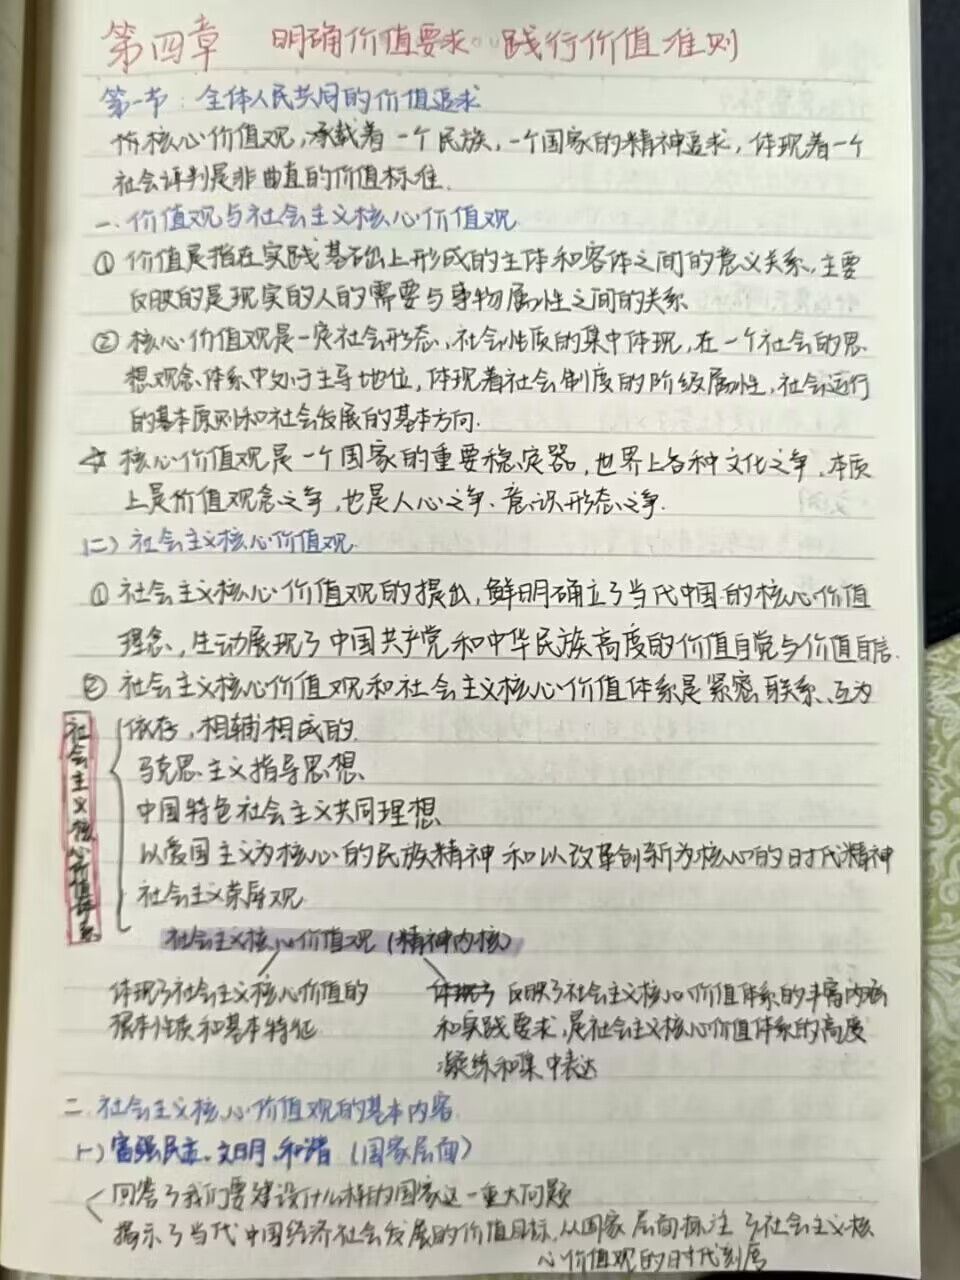 第四章 明确价值要求 践行价值准则
第一节：全体人民共同的价值追求
核心价值观，承载着一个民族，一个国家的精神追求，体现着一个
社会评判是非曲直的价值标准.
一.价值观与社会主义核心价值观
① 价值是指在实践基础上形成的主体和客体之间的意义关系，主要
反映的是现实的人的需要与事物属性之间的关系
② 核心价值观是一定社会形态，社会性质的集中体现，在一个社会的思
想观念体系中处于主导地位，体现着社会制度的阶级属性，社会运行
的基本原则和社会发展的基本方向.
☆ 核心价值观是一个国家的重要稳定器，世界上各种文化之争，本质
上是价值观念之争，也是人心之争、意识形态之争.
(二) 社会主义核心价值观
① 社会主义核心价值观的提出，鲜明确立了当代中国的核心价值
理念，生动展现了中国共产党和中华民族高度的价值自觉与价值自信.
② 社会主义核心价值观和社会主义核心价值体系是紧密联系、互为
依存，相辅相成的.
社会主义核心价值体系
马克思主义指导思想
中国特色社会主义共同理想
以爱国主义为核心的民族精神和以改革创新为核心的时代精神
社会主义荣辱观
社会主义核心价值观（精神内核）
体现了社会主义核心价值的
根本性质和基本特征
体现了 反映了社会主义核心价值体系的丰富内涵
和实践要求，是社会主义核心价值体系的高度
凝练和集中表达
二.社会主义核心价值观的基本内容
(一) 富强民主、文明、和谐（国家层面）
回答了我们要建设什么样的国家这一重大问题
揭示了当代中国经济社会发展的价值目标，从国家层面标注了社会主义核
心价值观的时代刻度